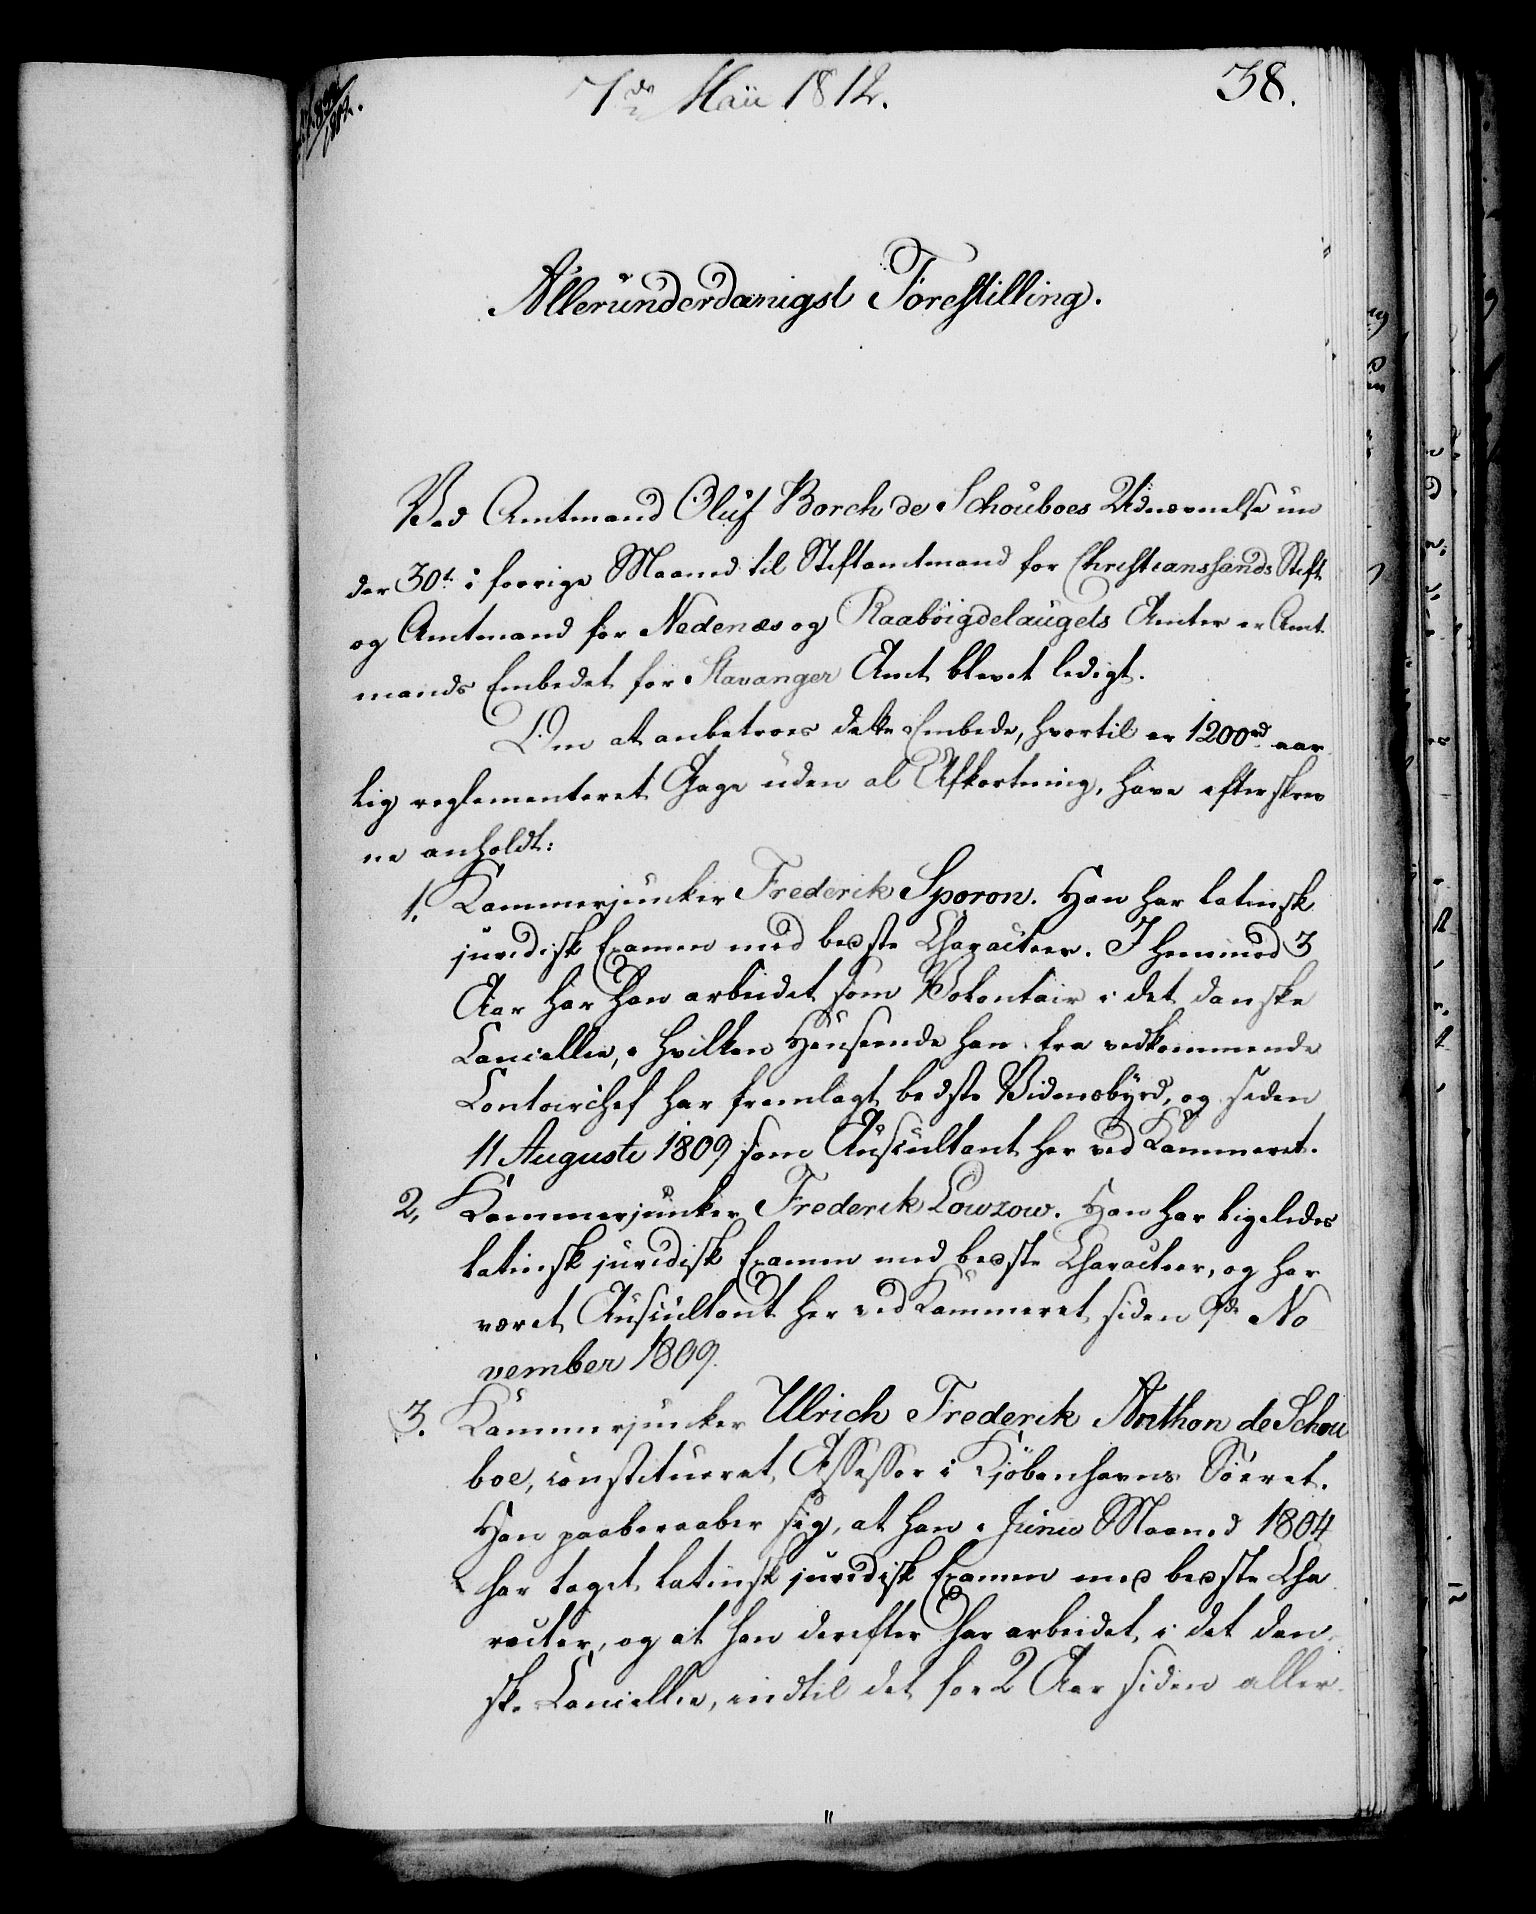 7de Maii 1812.
38.
Allerunderdanigst Forestilling.
Ved Amtmand Oluf Borch de Schouboes Udnævnelse un
der 30t i forrige Maaned til Stiftamtmand for Christianssands Stift
og Amtmand for Nedenæs og Raabøigdelaugets Amter er Amt
mands Embedet for Stavanger Amt blevet ledigt.
Om at anbetroes dette Embede, hvortil er 1200rd aar
lig reglementeret Gage uden al Afkortning, have efterskrev
ne anholdt:
1, Kammerjunker Frederik Sporon. Han har latinsk
juridisk Examen med bedste Characteer. I henimod 3
Aar har han arbeidet som Volontair i det danske
Cancellie, i hvilken Henseende han fra vedkommende
Contoirchef har fremlagt bedste Vidensbyrd, og siden
11 Augusti 1809 som Auscultant her ved Kammeret.
2, Kammerjunker Frederik Lowzow. Han har ligeledes
latinsk juridisk Examen med bedste Characteer, og har
været Auscultant her ved Kammeret siden 9de No
vember 1809.
3. Kammerjunker Ulrich Frederik Anthon de Schou
boe, constitueret Assessor i Kjøbenhavns Søeret.
Han paaberaaber sig, at han i Junii Maaned 1804
har taget latinsk juridisk Examen med bedste Cha
racter, og at han derefter har arbeidet i det dan
ske Cancellie, indtil det for 2 Aar siden aller